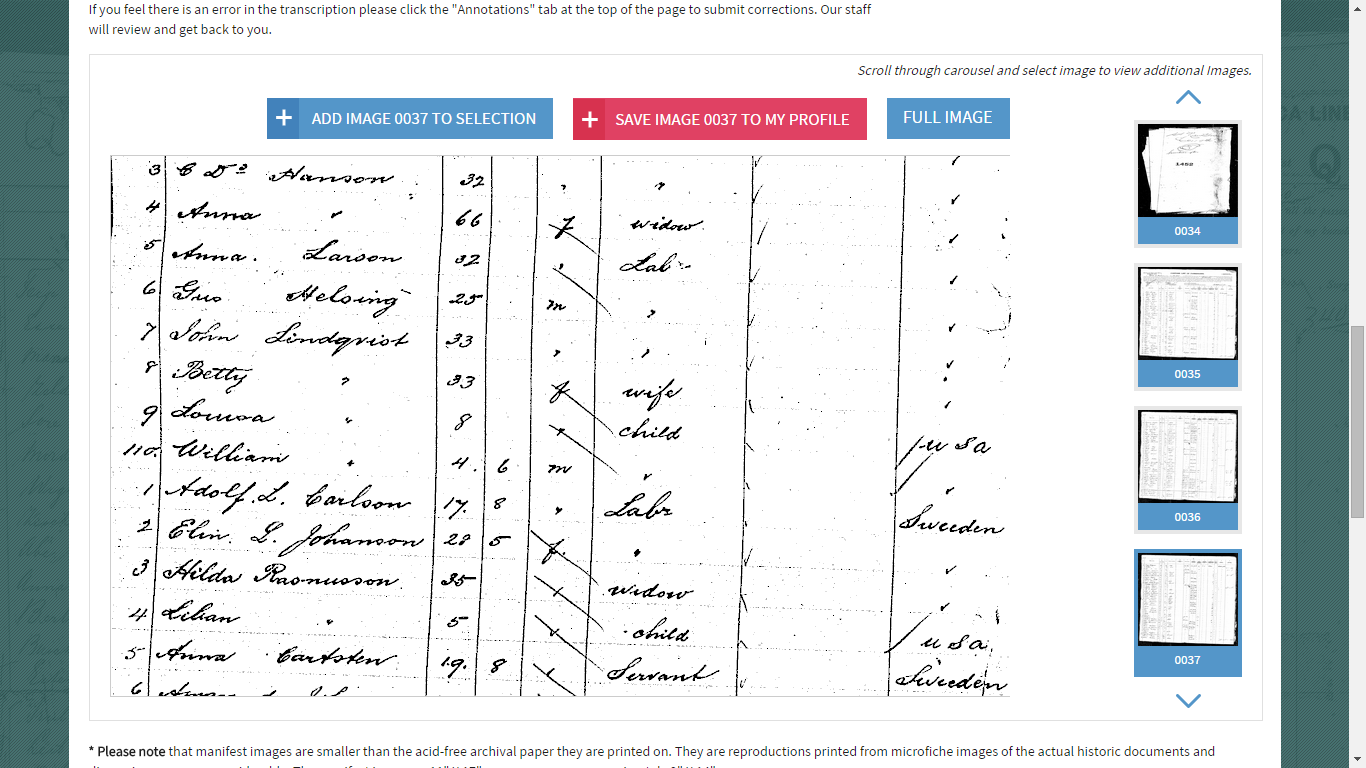 If you feel there is an error in the transcription please click the "Annotations" tab at the top of the page to submit corrections. Our staff
will review and get back to you.
Scroll through carousel and select image to view additional Images.
+ ADD IMAGE 0037 TO SELECTION
+ SAVE IMAGE 0037 TO MY PROFILE
FULL IMAGE
3 C Do Hanson 32 " "
4 Anna " 66 f widow
5 Anna. Larson 32 " Lab
6 Gus Helsing 25 m "
7 John Lindqvist 33 " "
8 Betty " 33 f wife
9 Lomsa " 8 " child
110. William " 4. 6 m " U S a
1 Adolf. L. Carlson 17. 8 " Labr
2 Elin. G. Johanson 28 5 f. " Sweeden
3 Hilda Rasmusson 35 " widow
4 Lilian " 5 " child U S a.
5 Anna Cartsten 19. 8 " Servant Sweeden
6
0034
0035
0036
0037
* Please note that manifest images are smaller than the acid-free archival paper they are printed on. They are reproductions printed from microfiche images of the actual historic documents and